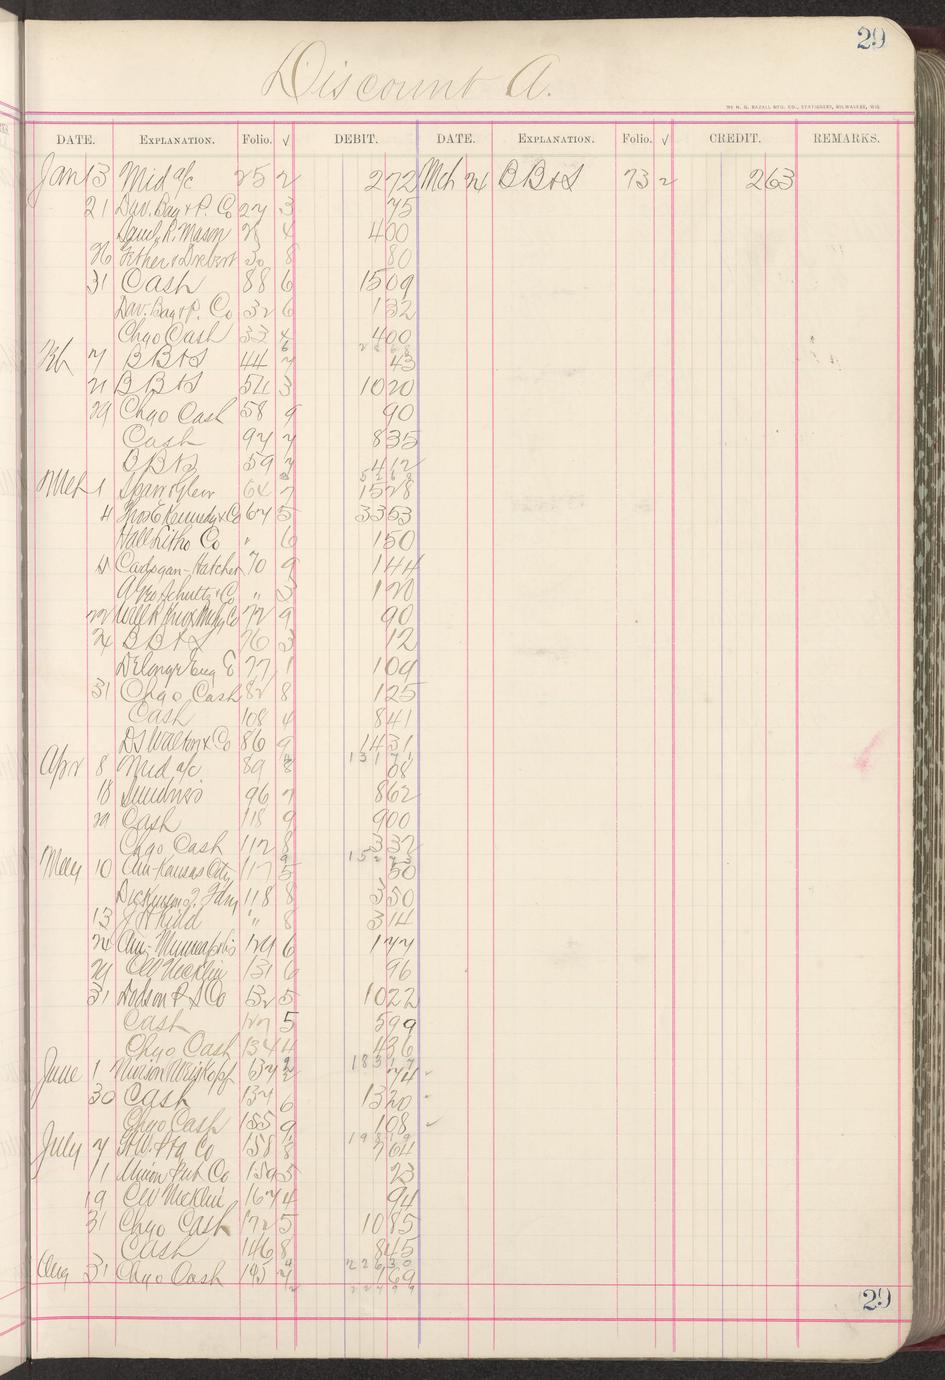 29
Discount A.
THE H. G. RAZALL MFG. CO., STATIONERS, MILWAUKEE, WIS.
DATE. EXPLANATION. Folio. √ DEBIT. DATE. EXPLANATION. Folio. √ CREDIT. REMARKS.
Jan 13 Mid a/c 25 2 272 Mch 24 BB&S 73 2 263
21 Dav. Bag & P. Co 27 3 75
Saml. R. Mason 4 400
26 30 8 80
31 Cash 88 6 1509
Dav. Bag & P. Co 32 6 132
Chgo Cash 33 4 400
Feb 7 BB&S 44 7 43
21 BB&S 54 3 1020
29 Chgo Cash 58 9 90
Cash 97 7 835
BB&S 59 7 412
Mch 1 64 7 1528
4 Thos E Kennedy & Co 67 5 3353
Hall Litho Co " 6 150
Cadogan-Hatcher 70 9 144
A Geo Schultz & Co " 3 120
22 Will R Knox Mfg Co 72 9 90
24 BB&S 76 3 12
DeLonge Eng E 77 1 109
31 Chgo Cash 82 8 125
Cash 108 4 841
DS Walton & Co 86 9 1431
Apr 8 Mid a/c 89 8 08
18 Sundries 96 7 862
29 Cash 118 9 900
Chgo Cash 112 8 332
May 10 Am-Kansas City 117 5 50
118 8 350
13 J H Kidd " 8 314
24 Am-Minneapolis 124 6 177
29 CW Mecklin 131 6 96
31 Dodson P S Co 132 5 1022
Cash 127 5 599
Chgo Cash 134 4 436
June 1 74
30 Cash 137 6 1320
Chgo Cash 155 9 108
July 7 158 8 764
11 Union Pub Co 159 5 23
19 CW Mecklin 167 4 94
31 Chgo Cash 172 5 1085
Cash 146 8 845
Aug 31 Chgo Cash 195 169
29